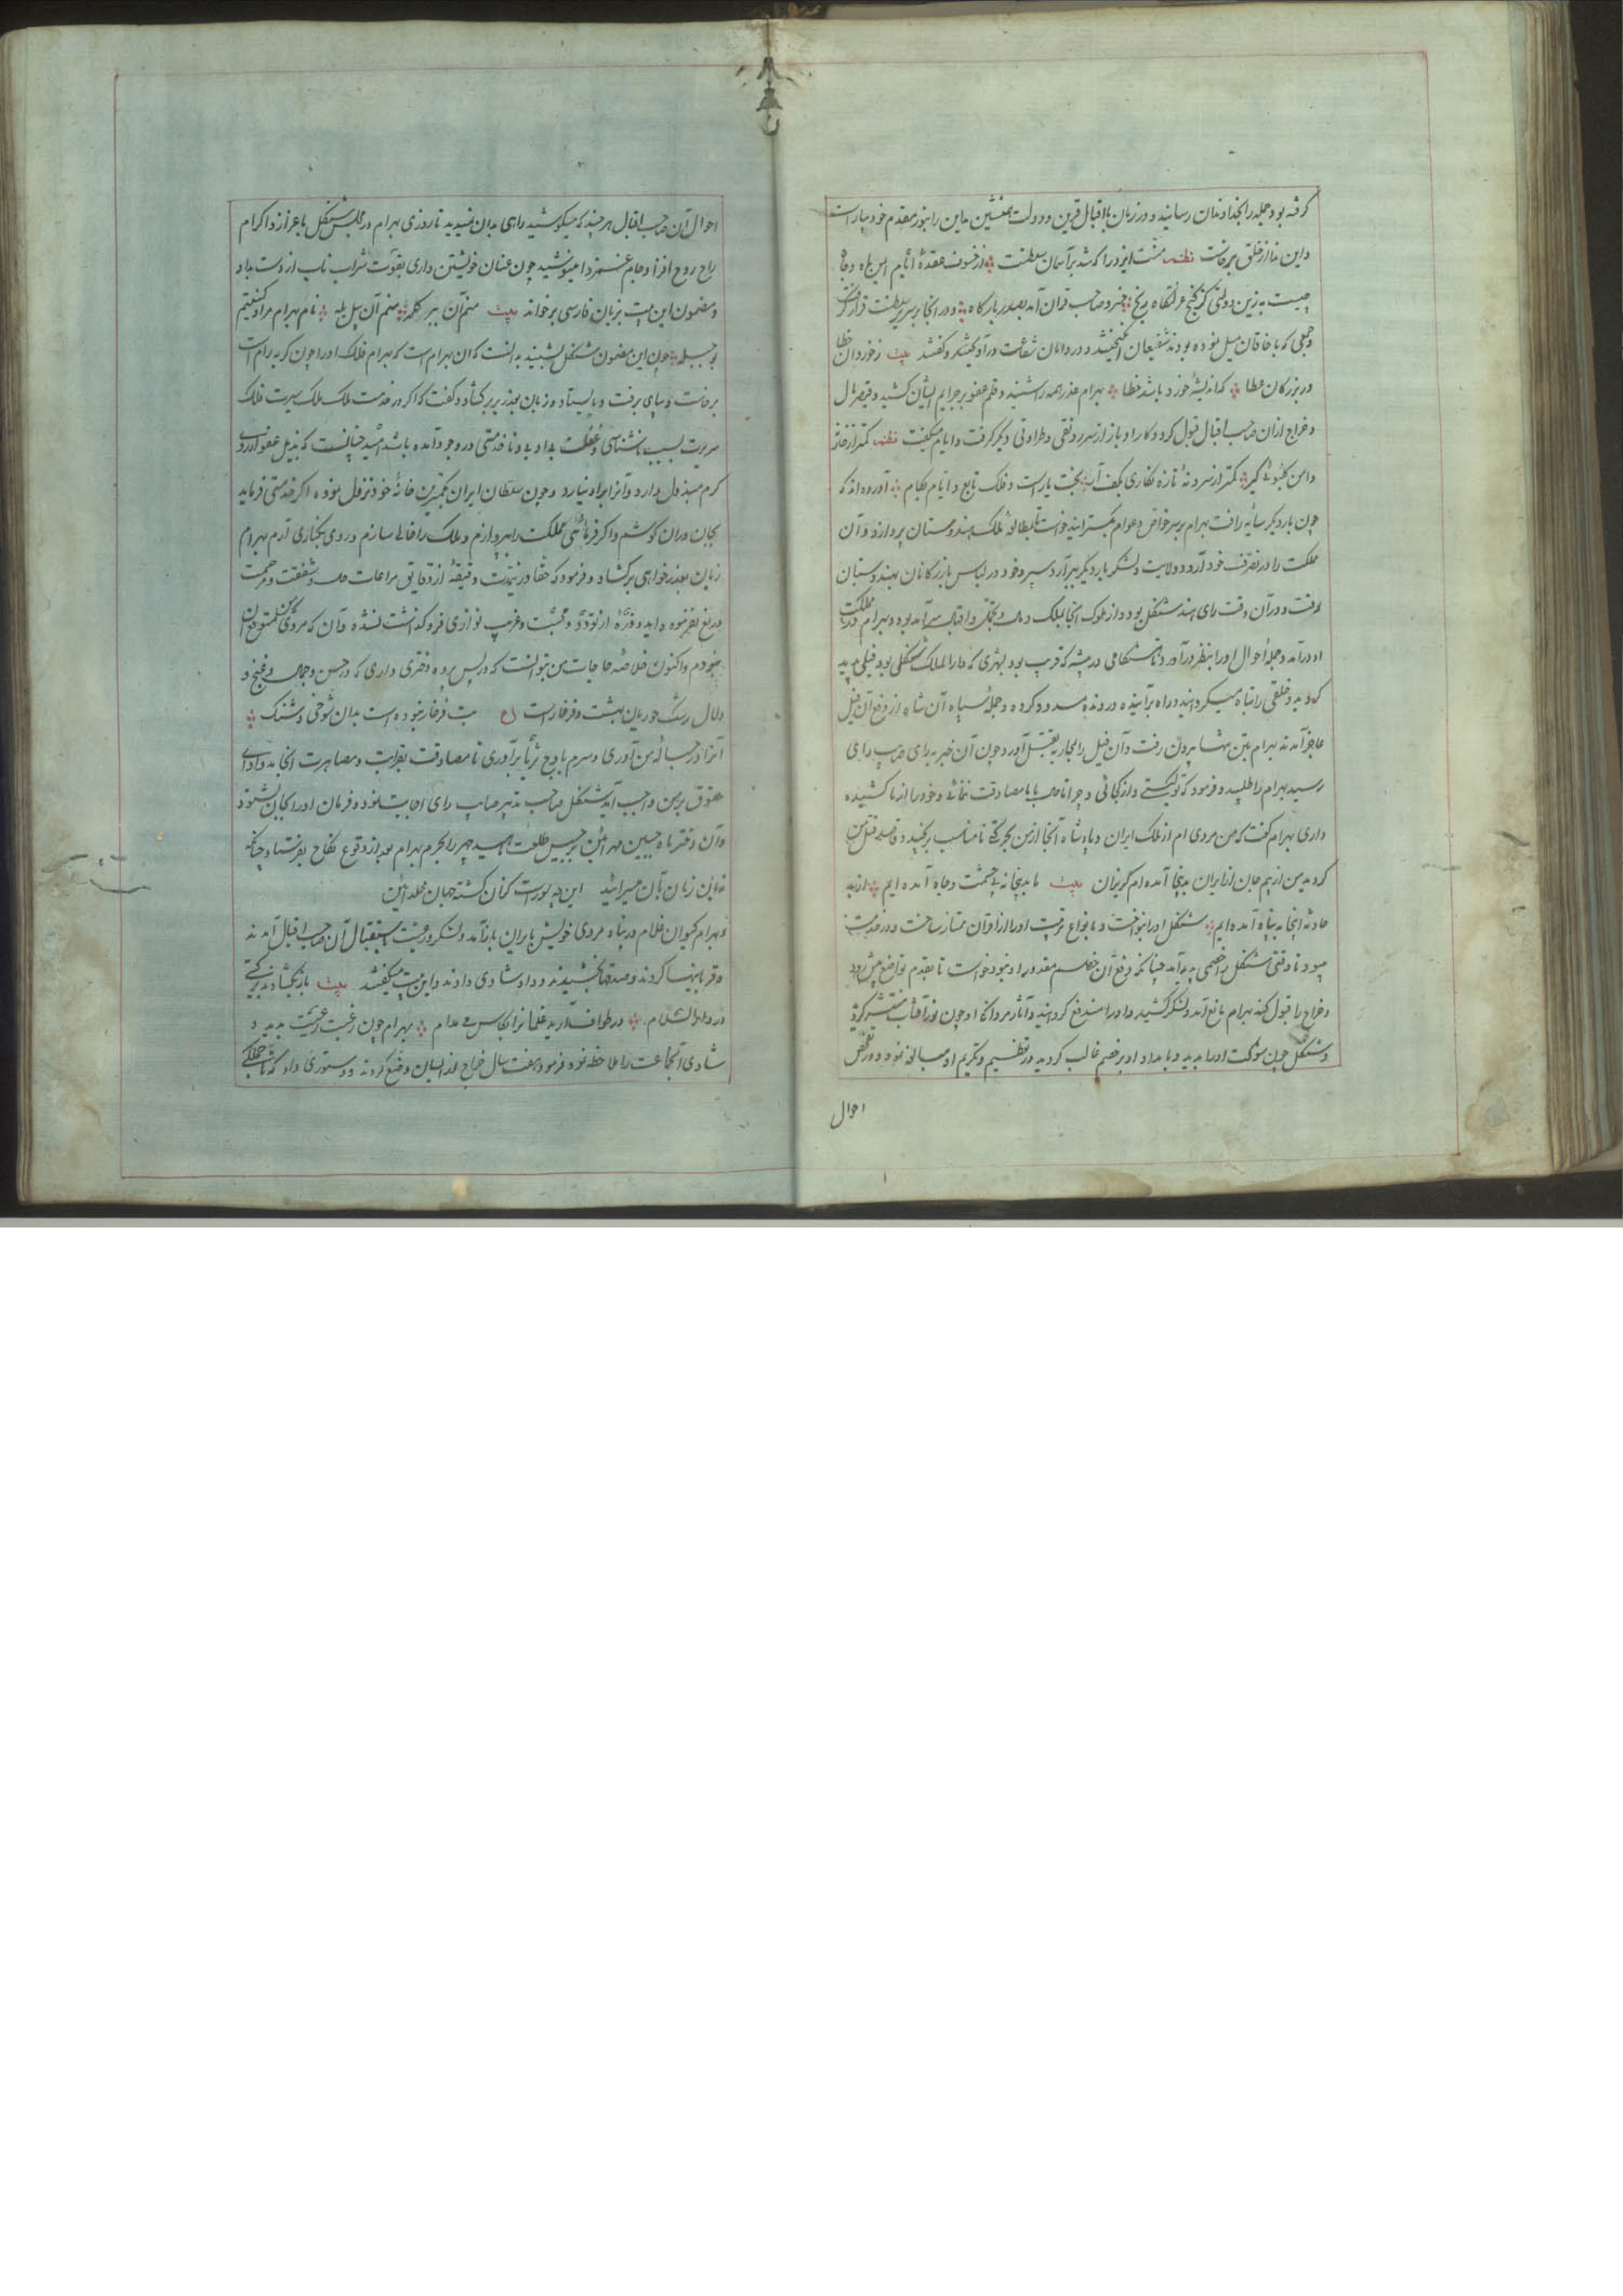 گرفته بود جمله را بخداوندان رسانید و در زمان با اقبال قرین و دولت همنشین مداین را بنور مقدم خود بیاراست
و این ندا از خلق برخاست نظم منت ایزد را که شد بر آسمان سلطنت از خسوف عقده ایام ایمن ماه و جاه
خسرو صاحب قران آمد بصدر بارگاه و در انجا بر سریر سلطنت قرار گرفت
و جمعی که با خاقان میل نموده بودند شفیعان انگیختند و در دامان شفاعت در آویختند و گفتند بیت ز خوردان خطا
در بزرگان عطا که اندیشه خورد باشد خطا بهرام عذر همه را شنید و قلم عفو بر جرایم ایشان کشید و قیصر مال
و خراج از آن صاحب اقبال قبول کرد و کار او باز از سر رونقی و طراوتی دیگر گرفت و ایام میگفت نظم
بخت یار است و فلک تابع و ایام بکام آورده اند که
چون بار دیگر سایه رافت بهرام بر سر خواص و عوام گسترانید خواست تا بمطالعه ملک هندوستان پردازد و آن
مملکت را در تصرف خود آرد و ولایت و لشکر بار دیگر سپرد و خود در لباس بازرگانان بهندوستان
رفت و در آن وقت رای هند شنگل بود و از ملوک انجا بملک و مال و تجمل و اقبال سر آمد بود و بهرام در مملکت
او در آمد و جمله احوال او را بنظر در آورد تا هنگامی در بیشه که قریب بود بشهری که دار الملک شنگل بود فیلی پدید
گردید و خلقی را تباه میگردانید و راه بر آینده و رونده مسدود کرده و جمله سپاه آن شاه از دفع آن فیل
عاجز آمدند بهرام بتن تنها بیرون رفت و آن فیل را بمحاربه بقتل آورد و چون آن خبر به رای صایب رای
رسید بهرام را طلبید و فرمود که تو کیستی و از کجائی و چرا تا حال با ما مصادقت ننمائی و خود را از ما کشیده
داری بهرام گفت که من مردی ام از ملک ایران و پادشاه آنجا از من بحرکتی نامناسب برنجید و قاصد قتل من
گردید من از بیم جان از ایران بدینجا آمده ام گریزان بیت ما بدینجا نه پی حشمت و جاه آمده ایم از بد
حادثه اینجا به پناه آمده ایم شنگل او را بنواخت و بانواع تربیت او را از اقران ممتاز ساخت و در خدمت
میبود تا وقتی شنگل را خصمی پدید آمد چنانکه دفع آن خصم مقدور او نبود خواست تا بقدم تواضع پیش رود
و خراج را قبول کند بهرام مانع آمد و لشکر کشید و او را مندفع گردانید و آثار مردانگی او چون نور آفتاب منتشر گردید
و شنگل چون شوکت او را بدید و بامداد او بر خصم غالب گردید در تعظیم و تکریم او مبالغه نمود و در تفحص
احوال
احوال آن صاحب اقبال هر چند که میکوشید راهی بدان نمیدید تا روزی بهرام در مجلس شنگل با عزاز و اکرام
راح روح افزا و جام غمزدا مینوشید چون عنان خویشتن داری بقوت شراب ناب از دست بداد
و مضمون این بیت بزبان فارسی بر خواند بیت منم آن ببر گله منم آن پیل یله نام بهرام مرا و کنیتم
بوجبله چون این مضمون شنگل بشنید بدانست که آن بهرام است که بهرام فلک او را چون گربه رام است
برخاست و بپای برفت و بایستاد و زبان بعذر بر گشاد و گفت که اگر در خدمت ملک ملک سیرت فلک
سریرت بسبب ناشناسی و غفلت بی ادبی و ناخدمتی در وجود آمده باشد امید چنانست که بذیل عفو از روی
کرم مبذول دارد و آنرا بر او نیارد و چون سلطان ایران بکمترین خانه خود نزول نموده اگر خدمتی فرماید
بجان در آن کوشم و اگر فرمائی مملکت را بپردازم و ملک را خالی سازم و روی بکناری آرم بهرام
زبان بعذر خواهی بر گشاد و فرمود که حقا در نیت دقیقه از دقایق مراعات و شفقت و مرحمت
دریغ نفرموده و ذره از تودد و محبت و غریب نوازی فرو گذاشت نشده و آن کار مروت
و اکنون خلاصه حاجات من بتو آنست که در پس پرده دختری داری که در حسن و جمال و غنج و
دلال رشک حوریان بهشت و فرخار است ع بت فرخار نبوده است بدان شوخی و شنگ
آنرا در حباله من آوری و سرم باوج ثریا بر آوری تا مصادقت بقرابت و مصاهرت انجامد و ادای
حقوق بر من واجب آید شنگل صاحب تدبیر صایب رای اجابت نمود و فرمان او را بجان شنود
و آن دختر ماه جبین مهر آئین برجیس طلعت ناهید چهر را بحرم بهرام بعد از وقوع نکاح بفرستاد چنانکه
این زبان بآن میرسانید این چه بود است کز آن گشته جهان خلد آئین
و بهرام کیوان غلام در پناه مردی خویش بایران باز آمد و لشکر و رعیت باستقبال آن صاحب اقبال آمدند
و قربانیها کردند و صدقها بخشیدند و داد شادی دادند و این بیت میگفتند بیت
در دار السلام در طواف آرید غلمانرا بکاس می مدام بهرام چون رغبت رعیت بدید و
شادی آن جماعت را ملاحظه نمود فرمود هفت سال خراج از ایشان وضع کردند و دستوری داد که تا جملگی